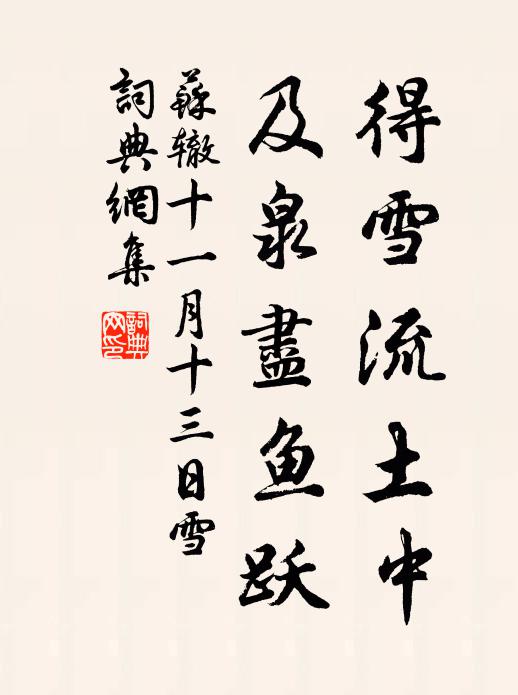 得雪流土中
及泉盡鱼跃
蘇辙十一月十三日雪
詞典網集
詞典网印